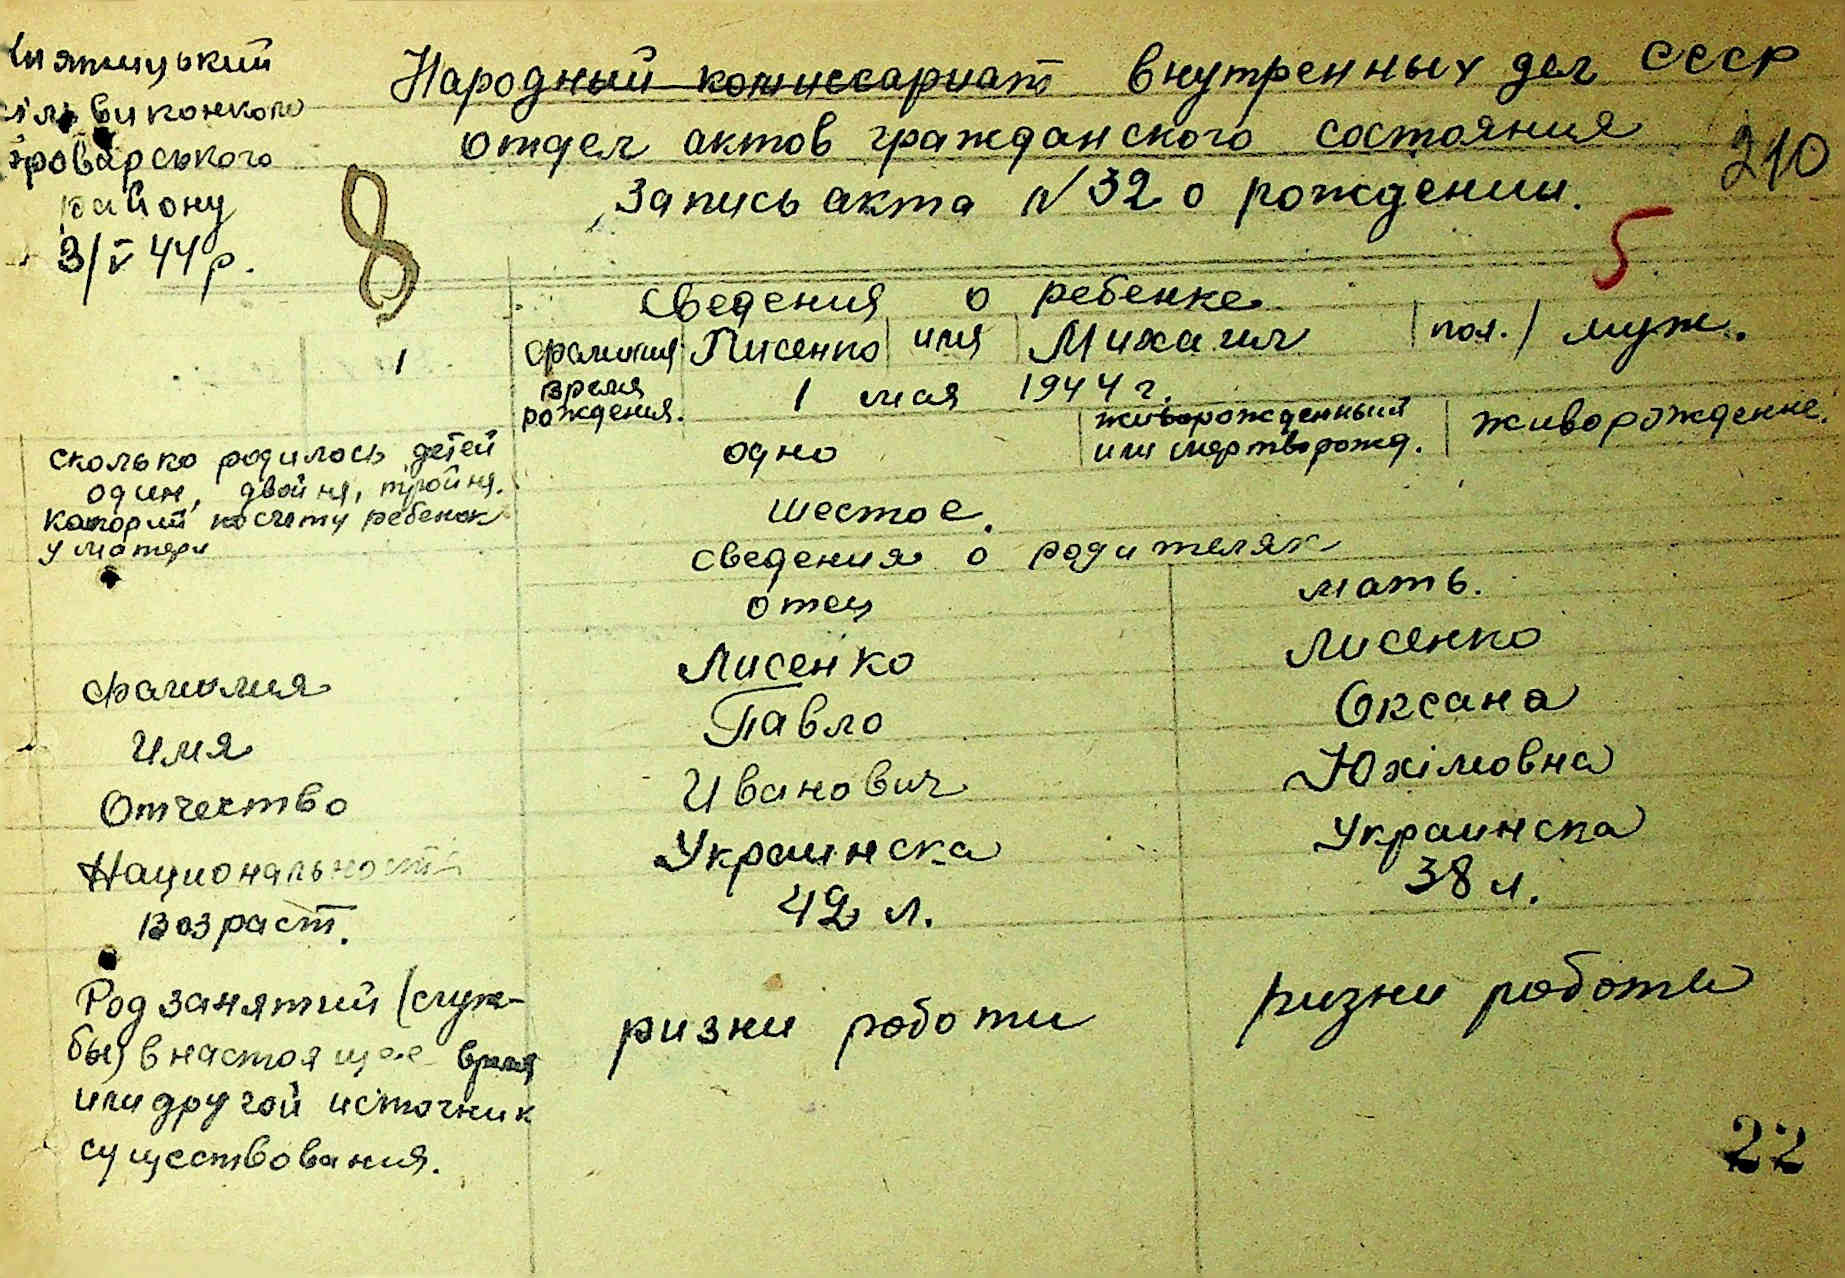 Народный комиссариат внутренных дел СССР
отдел актов гражданского состояния
Запись акта N 32 о рождении.
210
район
3/V 44 р.
8
5
Сведения о ребенке
1 фамилия Лисенко имя Михаил пол. муж.
время рождения. 1 мая 1944 г.
сколько родилось детей один, двойня, тройня. одно живорожденный или мертворожд. живорождение.
которий по счету ребенок у матери шестое.
Сведения о родителях
отец мать.
фамилия Лисенко Лисенко
Имя Павло Оксана
Отчество Иванович Юхімовна
Национальность Украинска Украинска
Возраст. 42 л. 38 л.
Род занятий (служ-
бы) в настоящее время ризни роботи ризни роботи
или другой источник
существования.
22